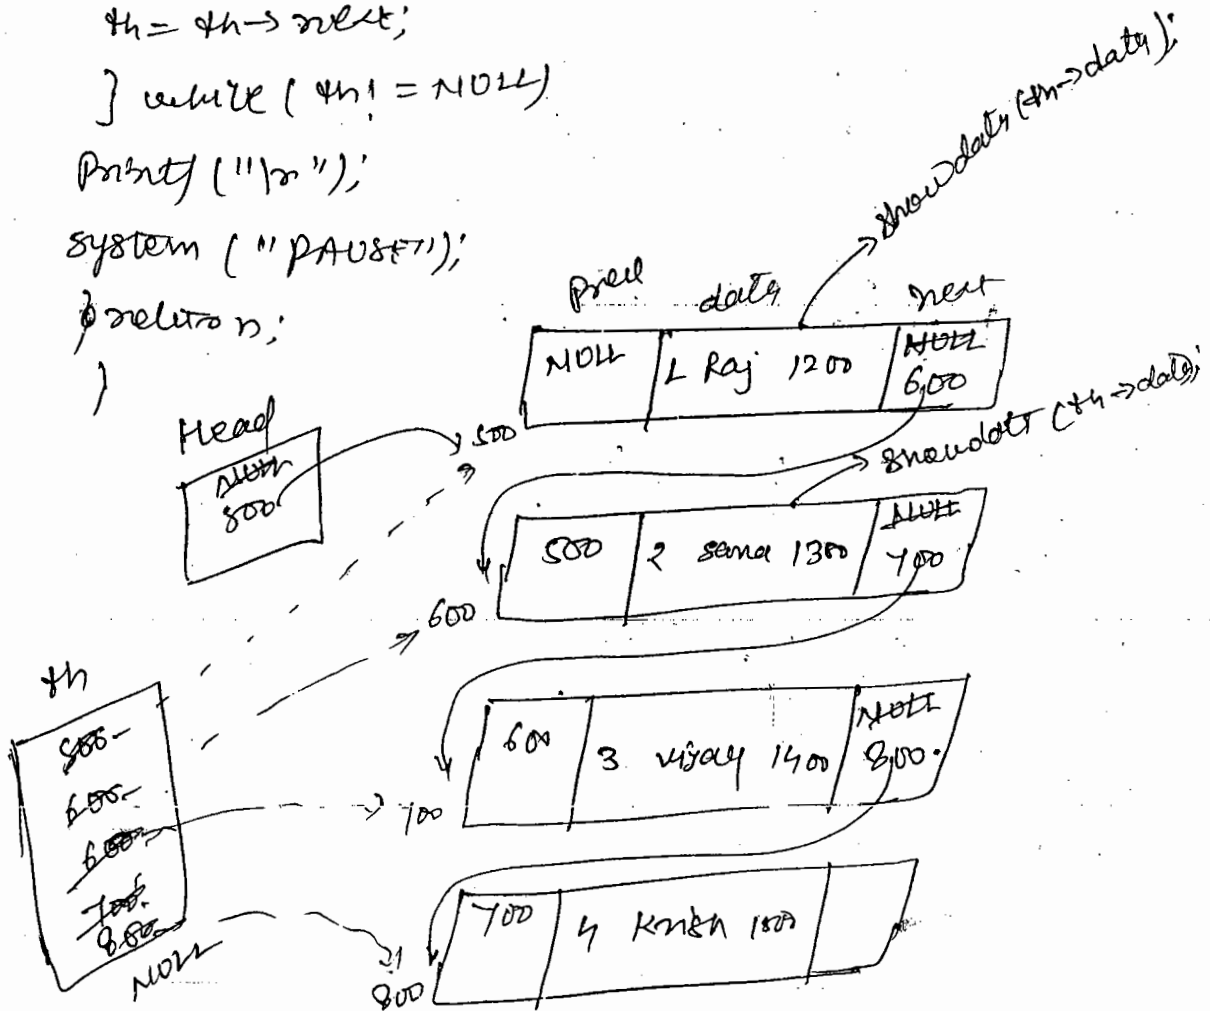 th = th->next;
} while ( th! = NULL)
Printf ("\n");
system ("PAUSE");
return;
}
showdata (th->data);
Prev data next
NULL 1 Raj 1200 NULL 600
500
Head
NULL
500
showdata (th->data);
500 2 sana 1300 NULL 700
600
th
500
600
600
700
800
NULL
600 3 vijay 1400 NULL 800
700
700 4 Krish 1500
800